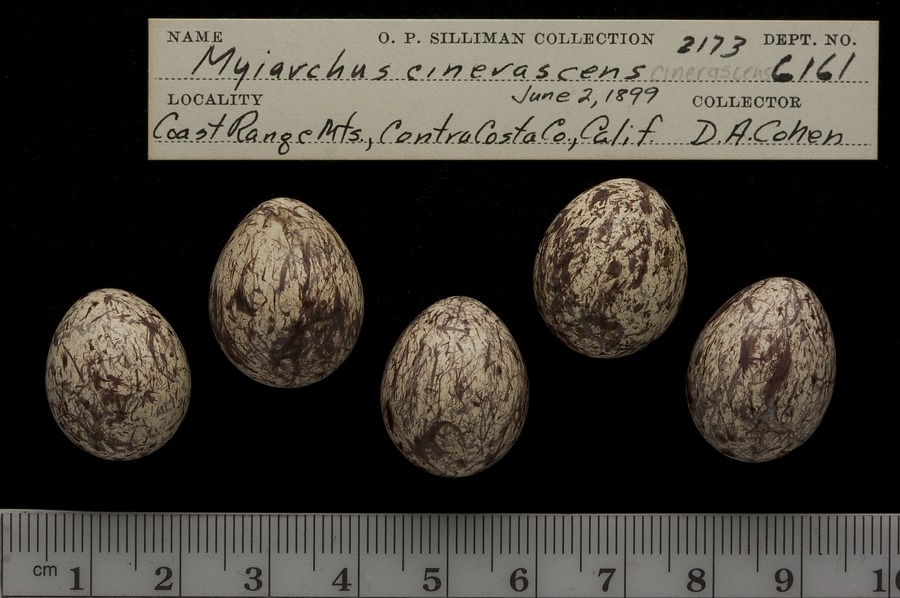 NAME O. P. SILLIMAN COLLECTION 2173 DEPT. NO.
Myiarchus cinerascens cinerascens 6161
LOCALITY June 2, 1899 COLLECTOR
Coast Range Mts., Contra Costa Co., Calif. D.A. Cohen
cm 1 2 3 4 5 6 7 8 9 10